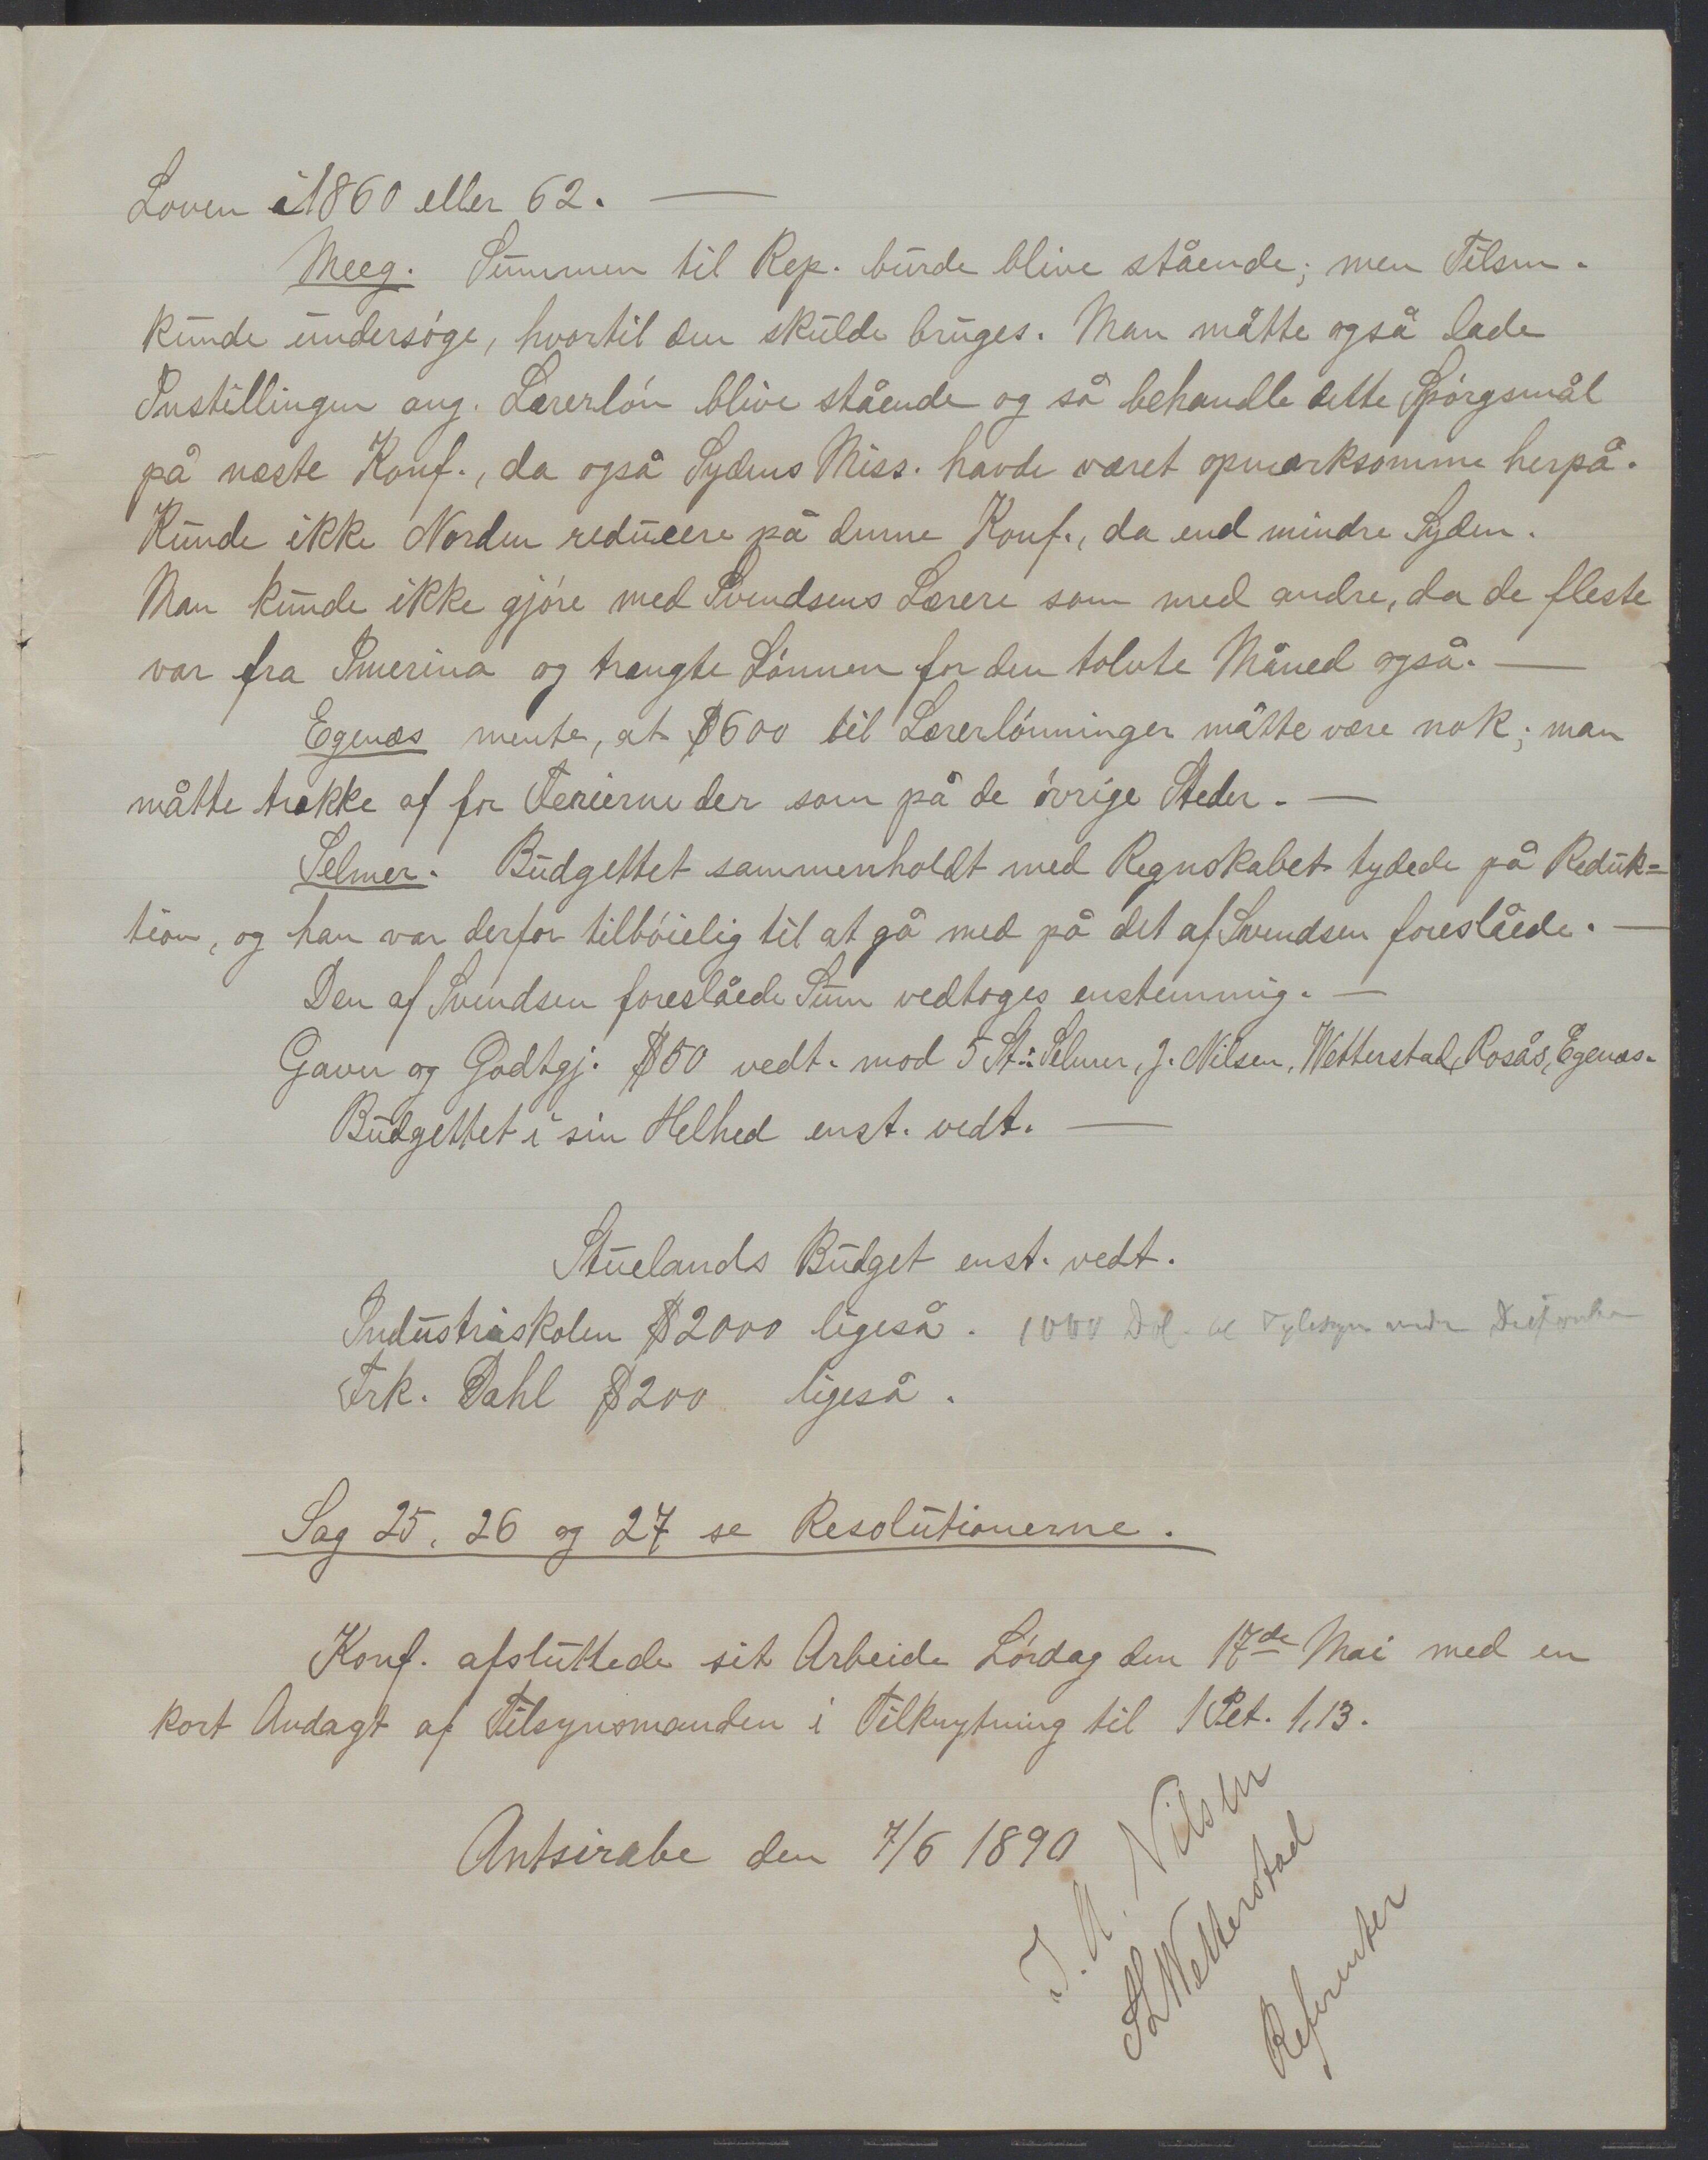 Loven i 1860 eller 62. —
Meeg. Summen til Rep. burde blive stående; men Tilsm.
kunde undersøge, hvortil den skulde bruges. Man måtte også lade
Instillingen ang. Lærerløn blive stående og så behandle dette Spørgsmål
på næste Konf., da også Sydens Miss. havde været opmærksomme herpå.
Kunde ikke Norden reducere på denne Konf., da end mindre Syden.
Man kunde ikke gjøre med Svendsens Lærere som med andre, da de fleste
var fra Imerina og trængte Lønnen for den tolvte Måned også. —
Egenæs mente, at $600 til Lærerlønninger måtte være nok; man
måtte trække af for Ferierne der som på de øvrige Steder. —
Selmer. Budgettet sammenholdt med Regnskabet tydede på Reduk=
tion, og han var derfor tilbøielig til at gå med på det af Svendsen foreslåede. —
Den af Svendsen foreslåede Sum vedtoges enstemmig. —
Gaver og Godtgj. $50 vedt. mod 5 St.: Selmer, J. Nilsen, Wetterstad, Rosås, Egenæs.
Budgettet i sin Helhed enst. vedt. —
Stuelands Budget enst. vedt.
Industriskolen $2000 ligeså. 1000 Dol.
Frk. Dahl $200 ligeså.
Sag 25, 26 og 27 se Resolutionerne.
Konf. afsluttede sit Arbeide Lørdag den 17de Mai med en
kort Andagt af Tilsynsmanden i Tilknytning til 1 Pet. 1,13.
Antsirabe den 7/6 1890
Nilsen
Wetterstad
Referenter